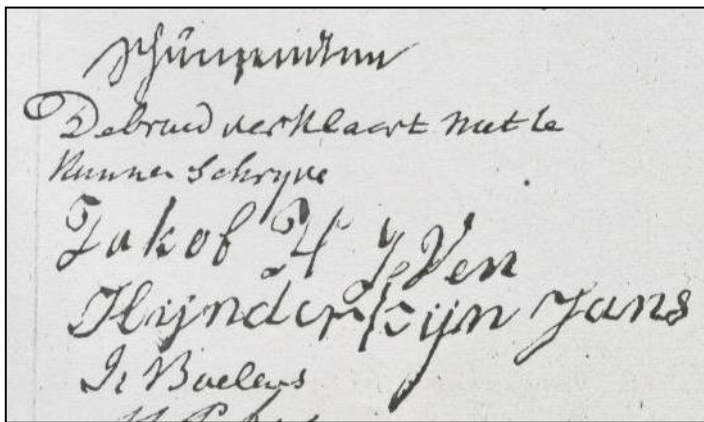 Debruid verklaart niet te
kunnen Schryve
Jakob H Ven
Hijnderkijn Jans
Js Boelens